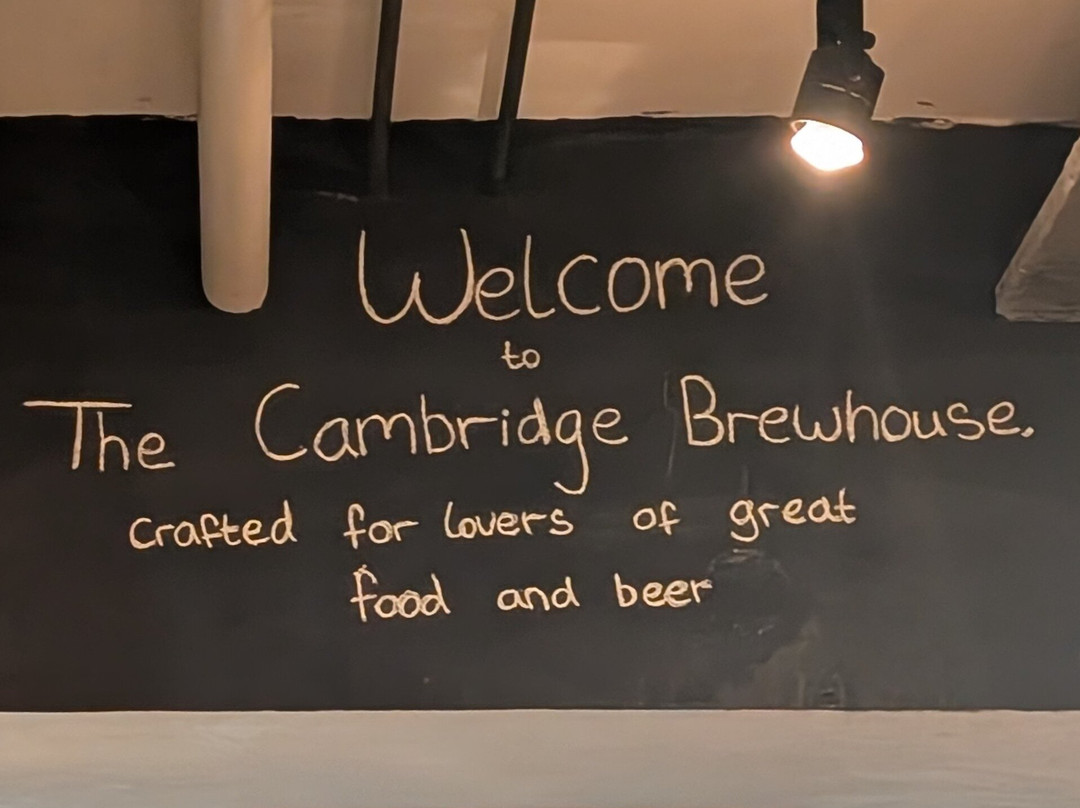 Welcome
to
The Cambridge Brewhouse.
crafted for lovers of great
food and beer